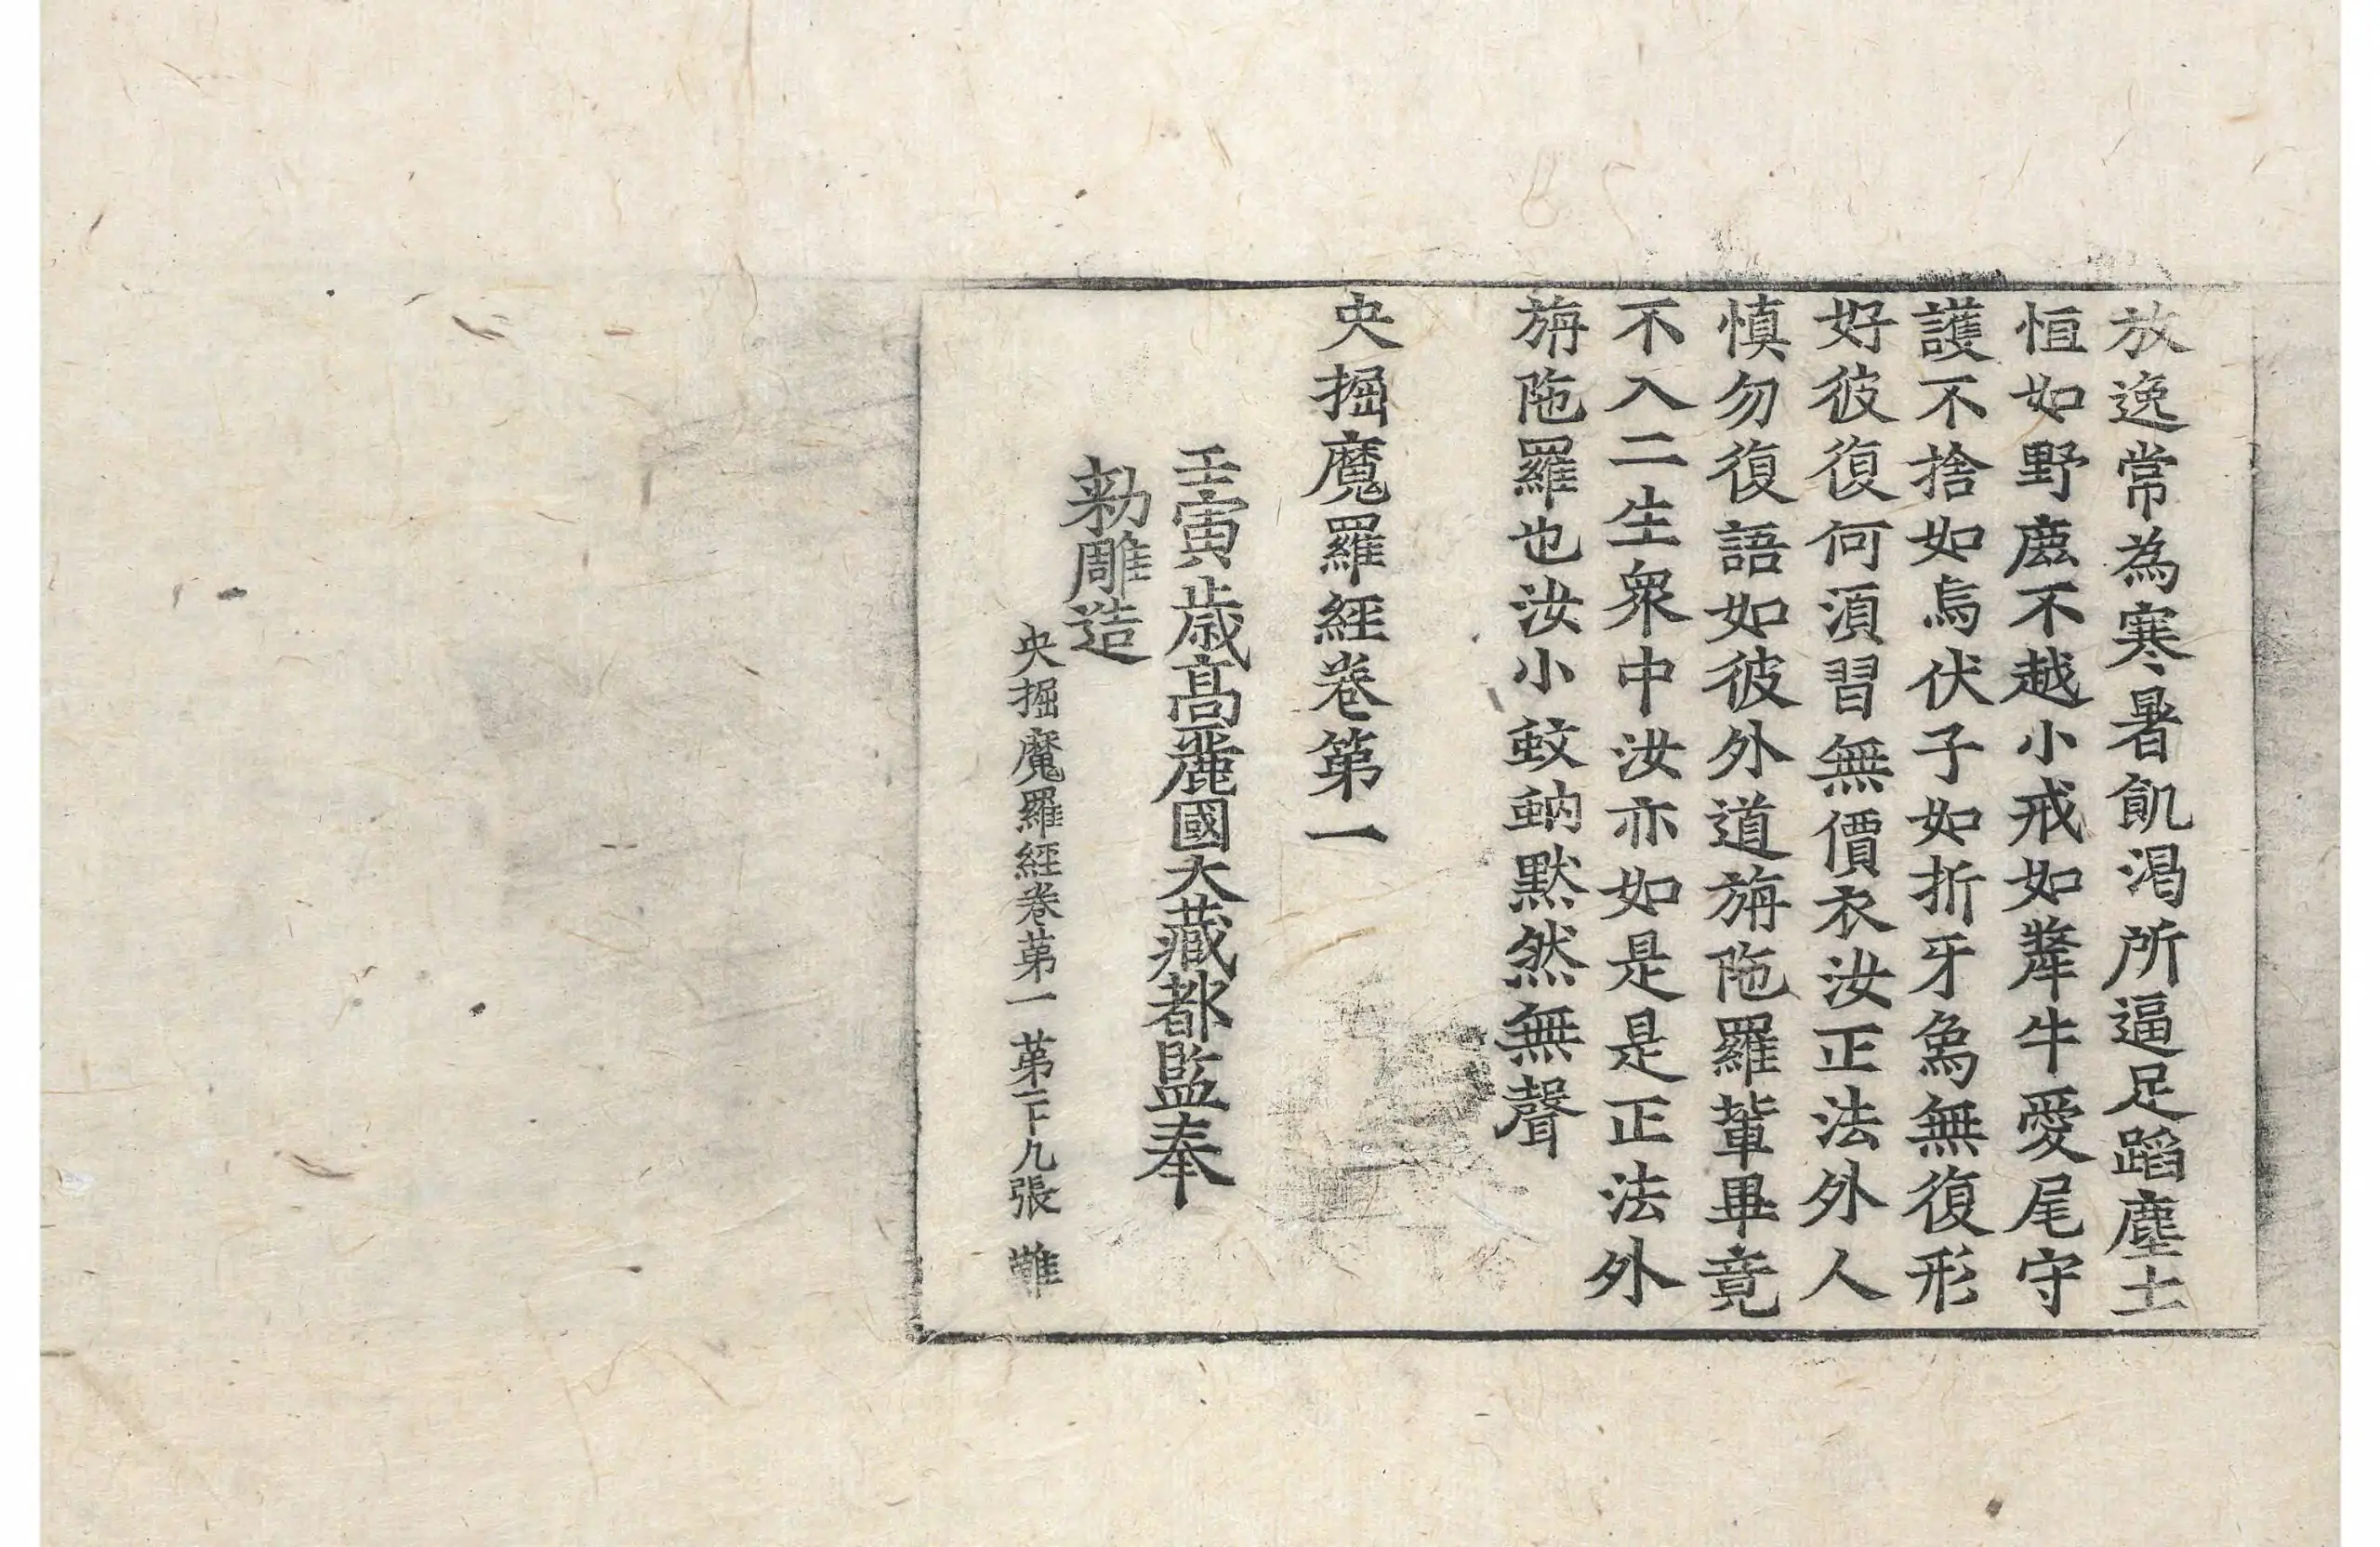 放逸常為寒暑飢渴所逼足蹈塵土
恒如野鹿不越小戒如犛牛愛尾守
護不捨如烏伏子如折牙象無復形
好彼復何須習無價衣汝正法外人
慎勿復語如彼外道旃陁羅輩畢竟
不入二生衆中汝亦如是是正法外
旃陁羅也汝小蚊蚋默然無聲
央掘魔羅經卷第一
壬寅歳高麗國大藏都監奉
勑雕造
央掘魔羅經卷苐一 苐二十九張 難